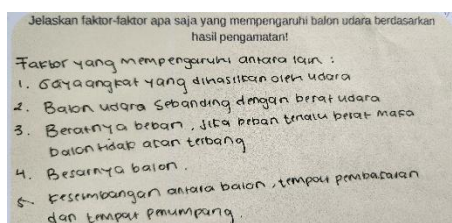 Jelaskan faktor-faktor apa saja yang mempengaruhi balon udara berdasarkan
hasil pengamatan!
Faktor yang mempengaruhi antara lain :
1. Gaya angkat yang dihasilkan oleh udara
2. Balon udara sebanding dengan berat udara
3. Beratnya beban, jika beban terlalu berat maka
balon tidak akan terbang
4. Besarnya balon.
5 keseimbangan antara balon, tempat pembakaran
dan tempat penumpang.